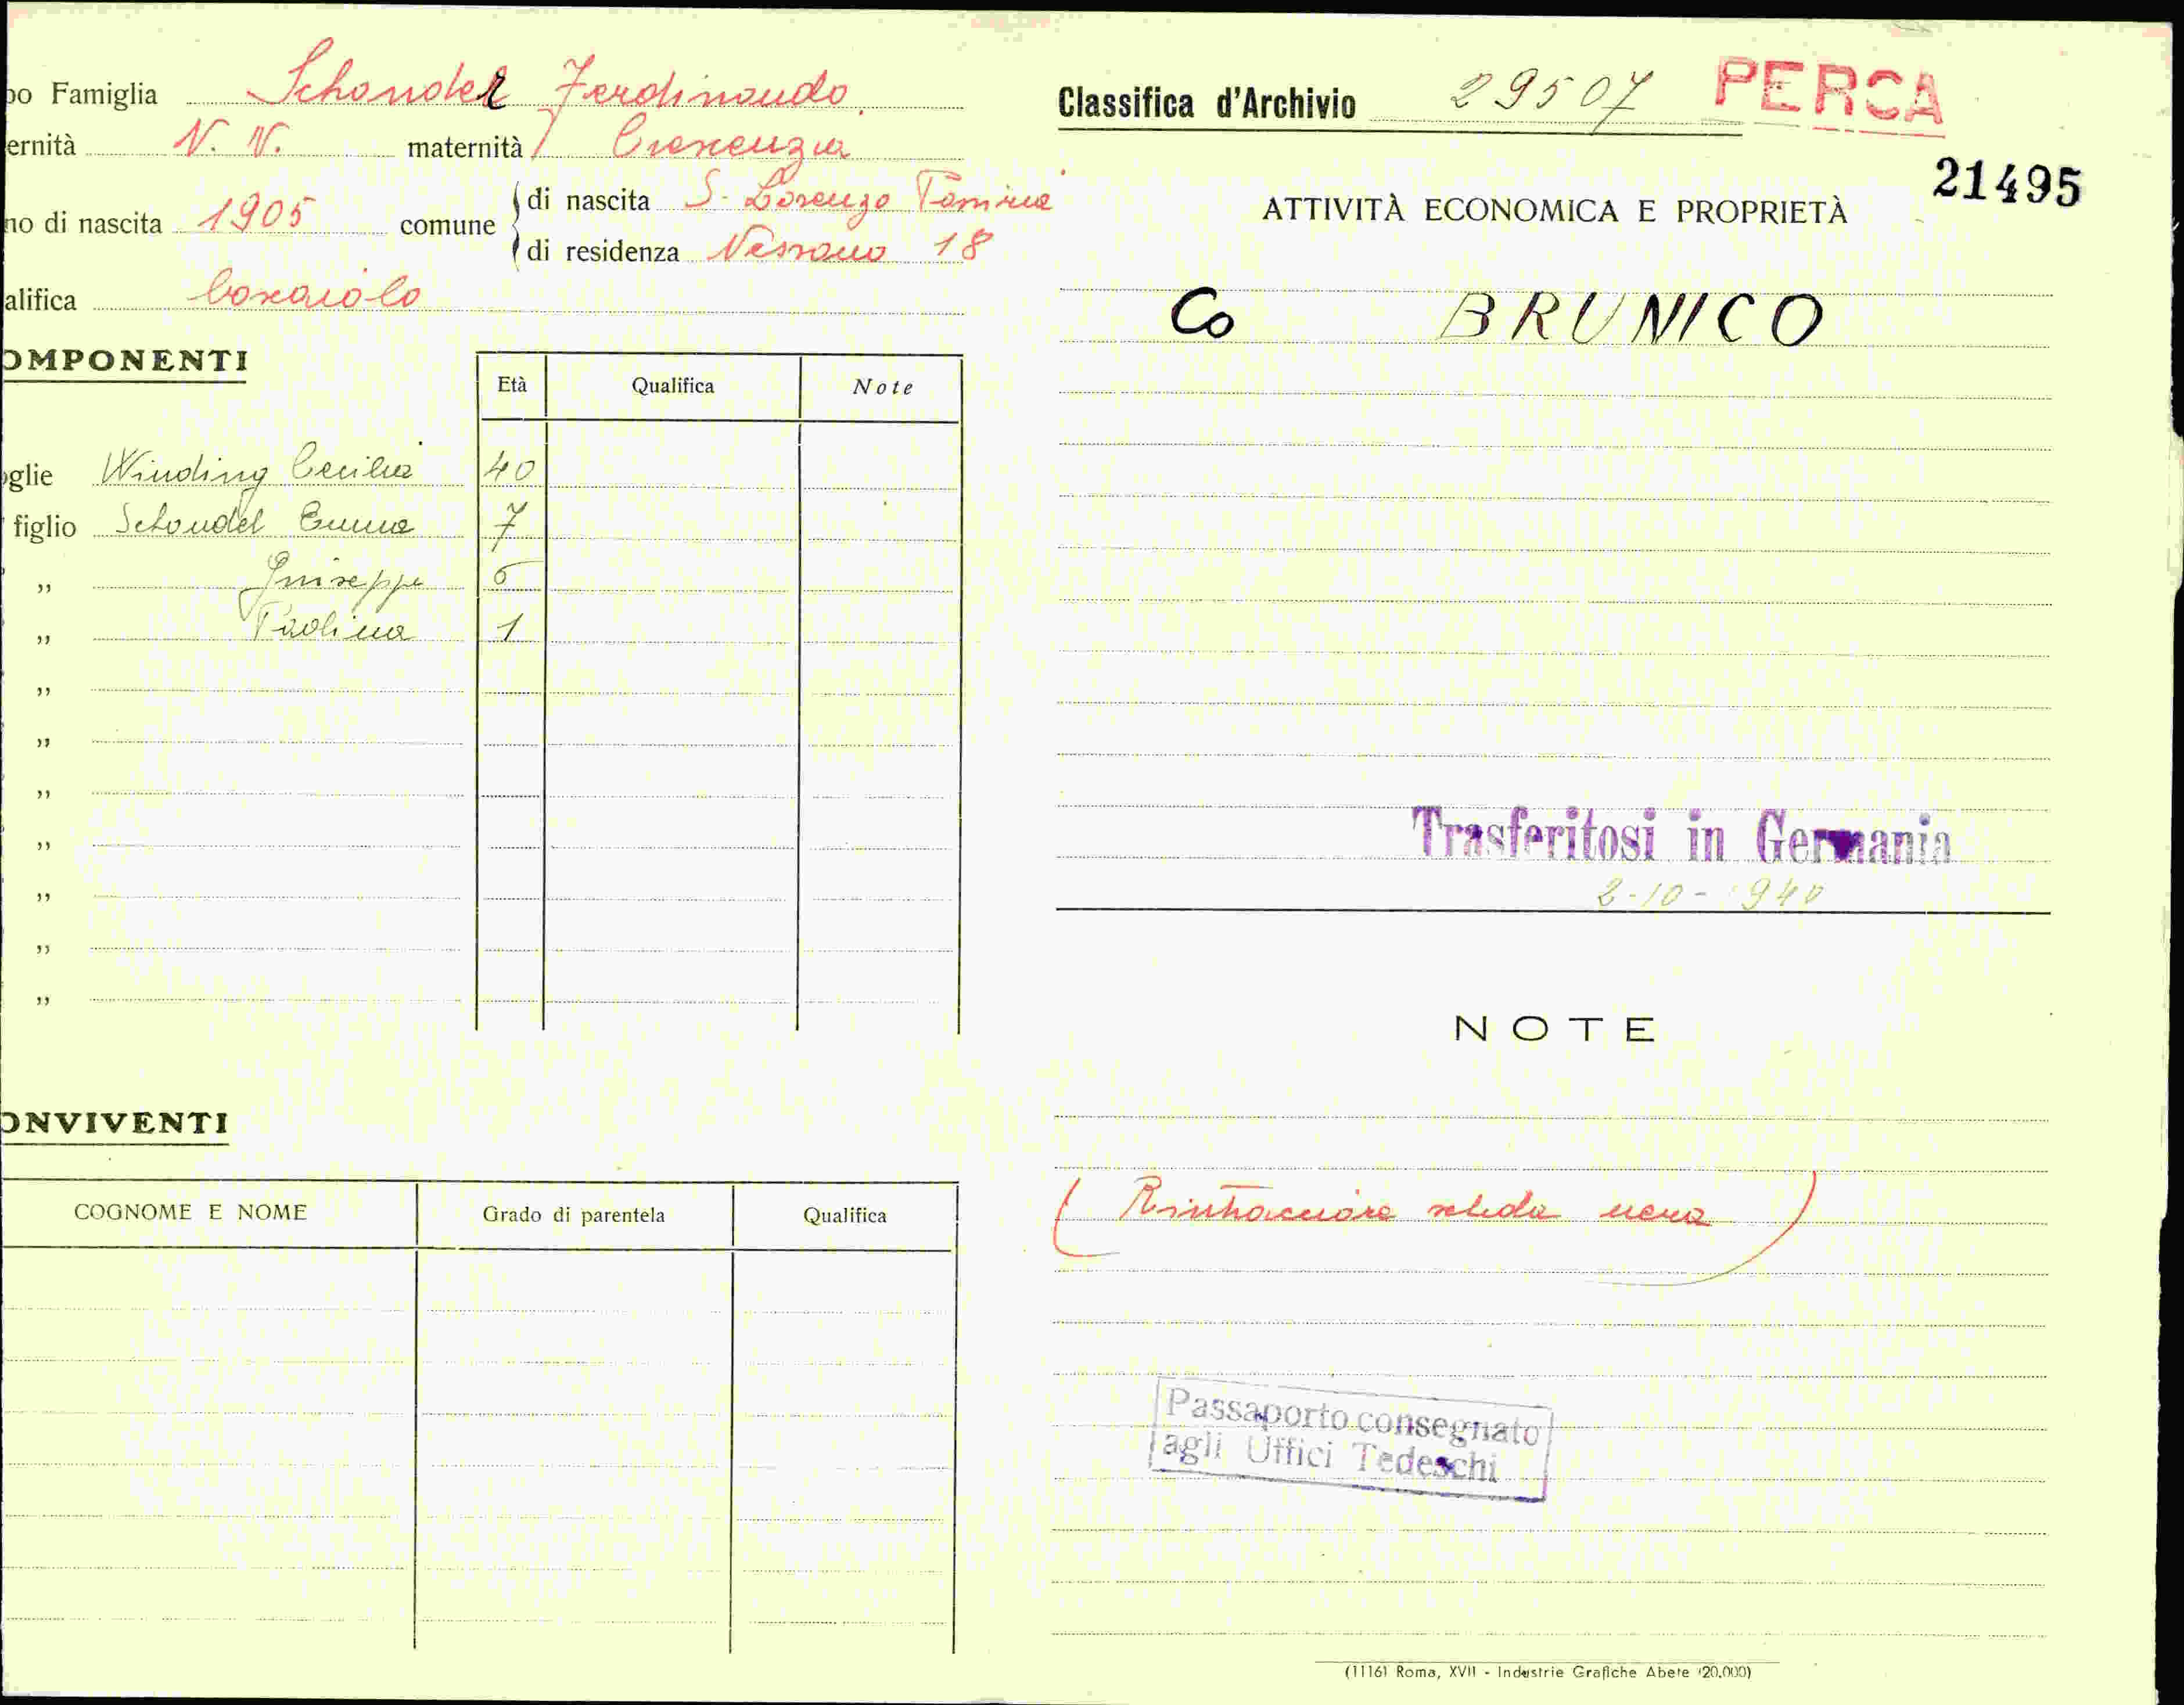 po Famiglia Schondel Ferdinando
ernità N. N. maternità Crescenzia
no di nascita 1905 comune di nascita S. Lorenzo
di residenza Nessano 18
alifica
OMPONENTI
Età Qualifica Note
oglie Winding Cecilia 40
figlio Schondel Emma 7
„ Giuseppe 6
„ Paolina 1
„
„
„
„
„
„
„
ONVIVENTI
COGNOME E NOME Grado di parentela Qualifica
Classifica d'Archivio 29507 PERCA
21495
ATTIVITÀ ECONOMICA E PROPRIETÀ
Co BRUNICO
Trasferitosi in Germania
2-10-940
NOTE
(Rintracciare scheda nera)
Passaporto consegnato
agli Uffici Tedeschi
(1116) Roma, XVII - Industrie Grafiche Abete (20.000)